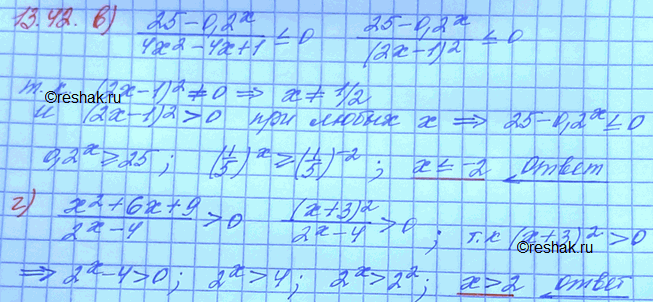 13.42. в) (25-0,2^x)/(4x²-4x+1) ≤ 0   (25-0,2^x)/(2x-1)² ≤ 0
т.к. (2x-1)² ≠ 0 ⇒ x ≠ 1/2
©reshak.ru
и (2x-1)² > 0 при любых x ⇒ 25-0,2^x ≤ 0
0,2^x ≥ 25; (1/5)^x ≥ (1/5)^-2; x ≤ -2 ответ
г) (x²+6x+9)/(2^x-4) > 0   (x+3)²/(2^x-4) > 0; т.к (x+3)² > 0
©reshak.ru
⇒ 2^x-4>0; 2^x>4; 2^x>2²; x>2 ответ